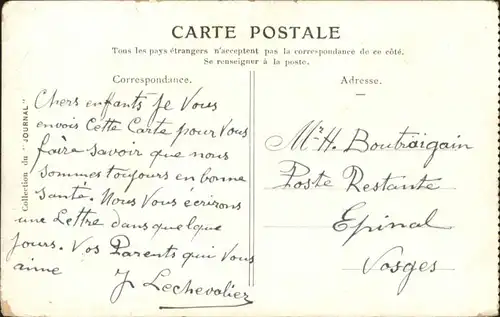 CARTE POSTALE
Tous les pays étrangers n'acceptent pas la correspondance de ce côté.
Se renseigner à la poste.
Correspondance.
Adresse.
Collection du "JOURNAL"
Chers enfants Je Vous
envois Cette Carte pour Vous
faire savoir que nous
sommes toujours en bonne
santé. Nous Vous écrirons
une Lettre dans quelque
jours. Vos Parents qui Vous
aime
J Lechevalier
Mr H. Boutraigain
Poste Restante
Epinal
Vosges